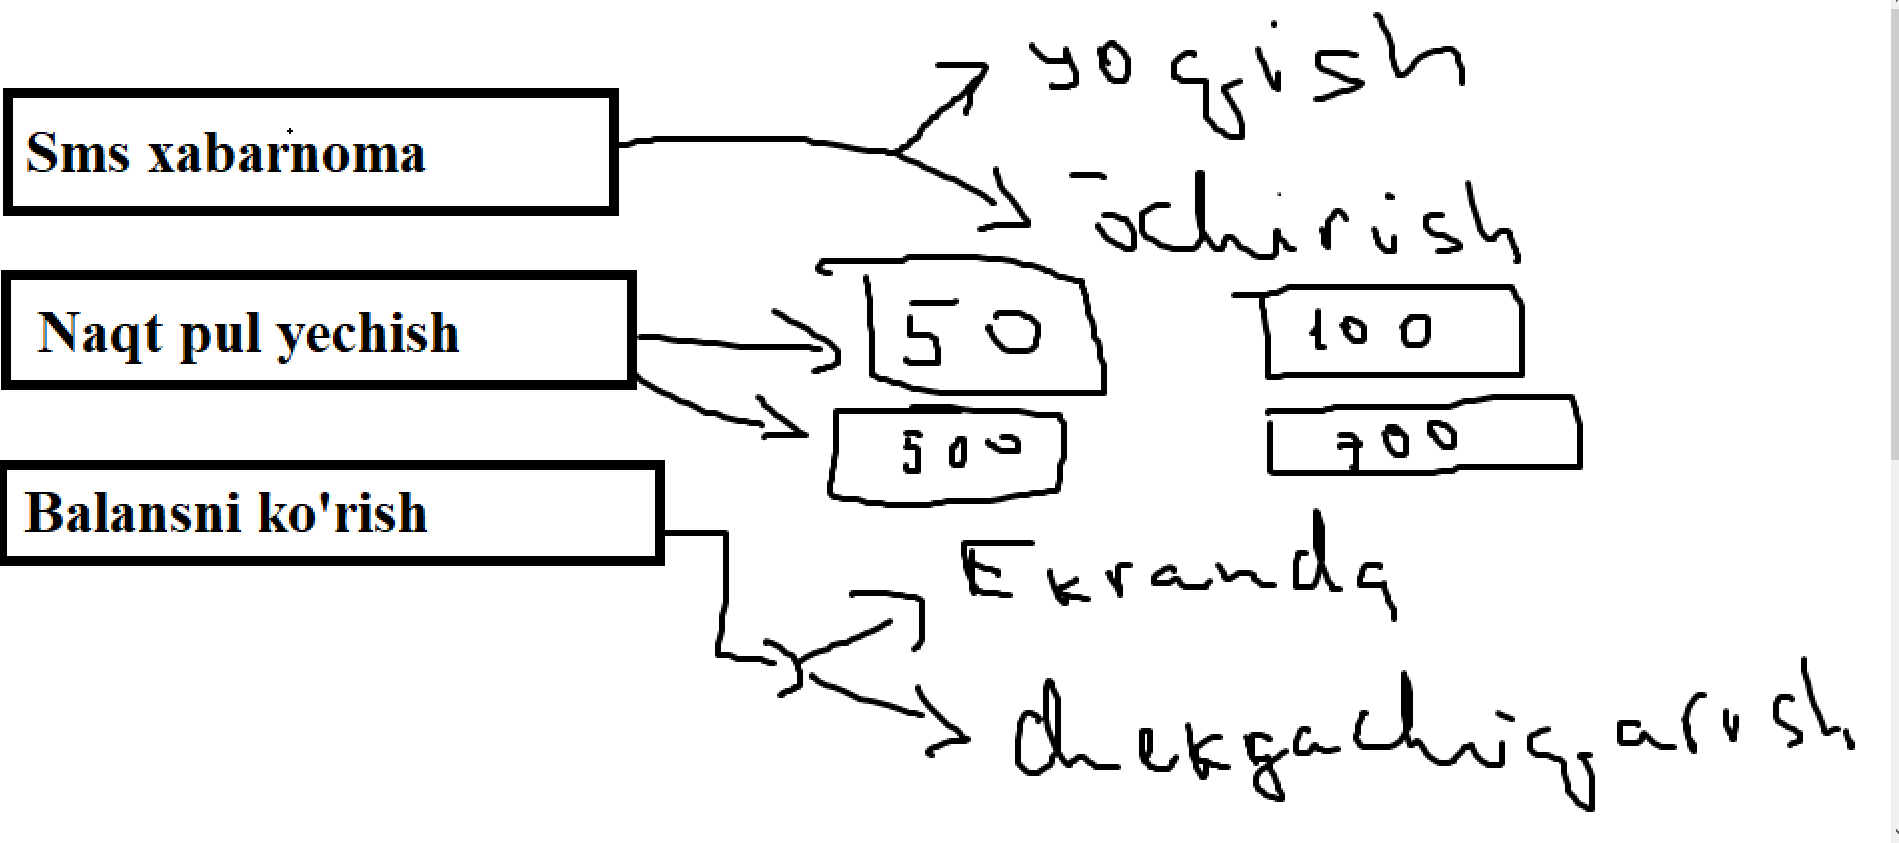 yoqish
Sms xabarnoma
ochirish
Naqt pul yechish
50 100
500 700
Balansni ko'rish
Ekranda
chekgachiqarish